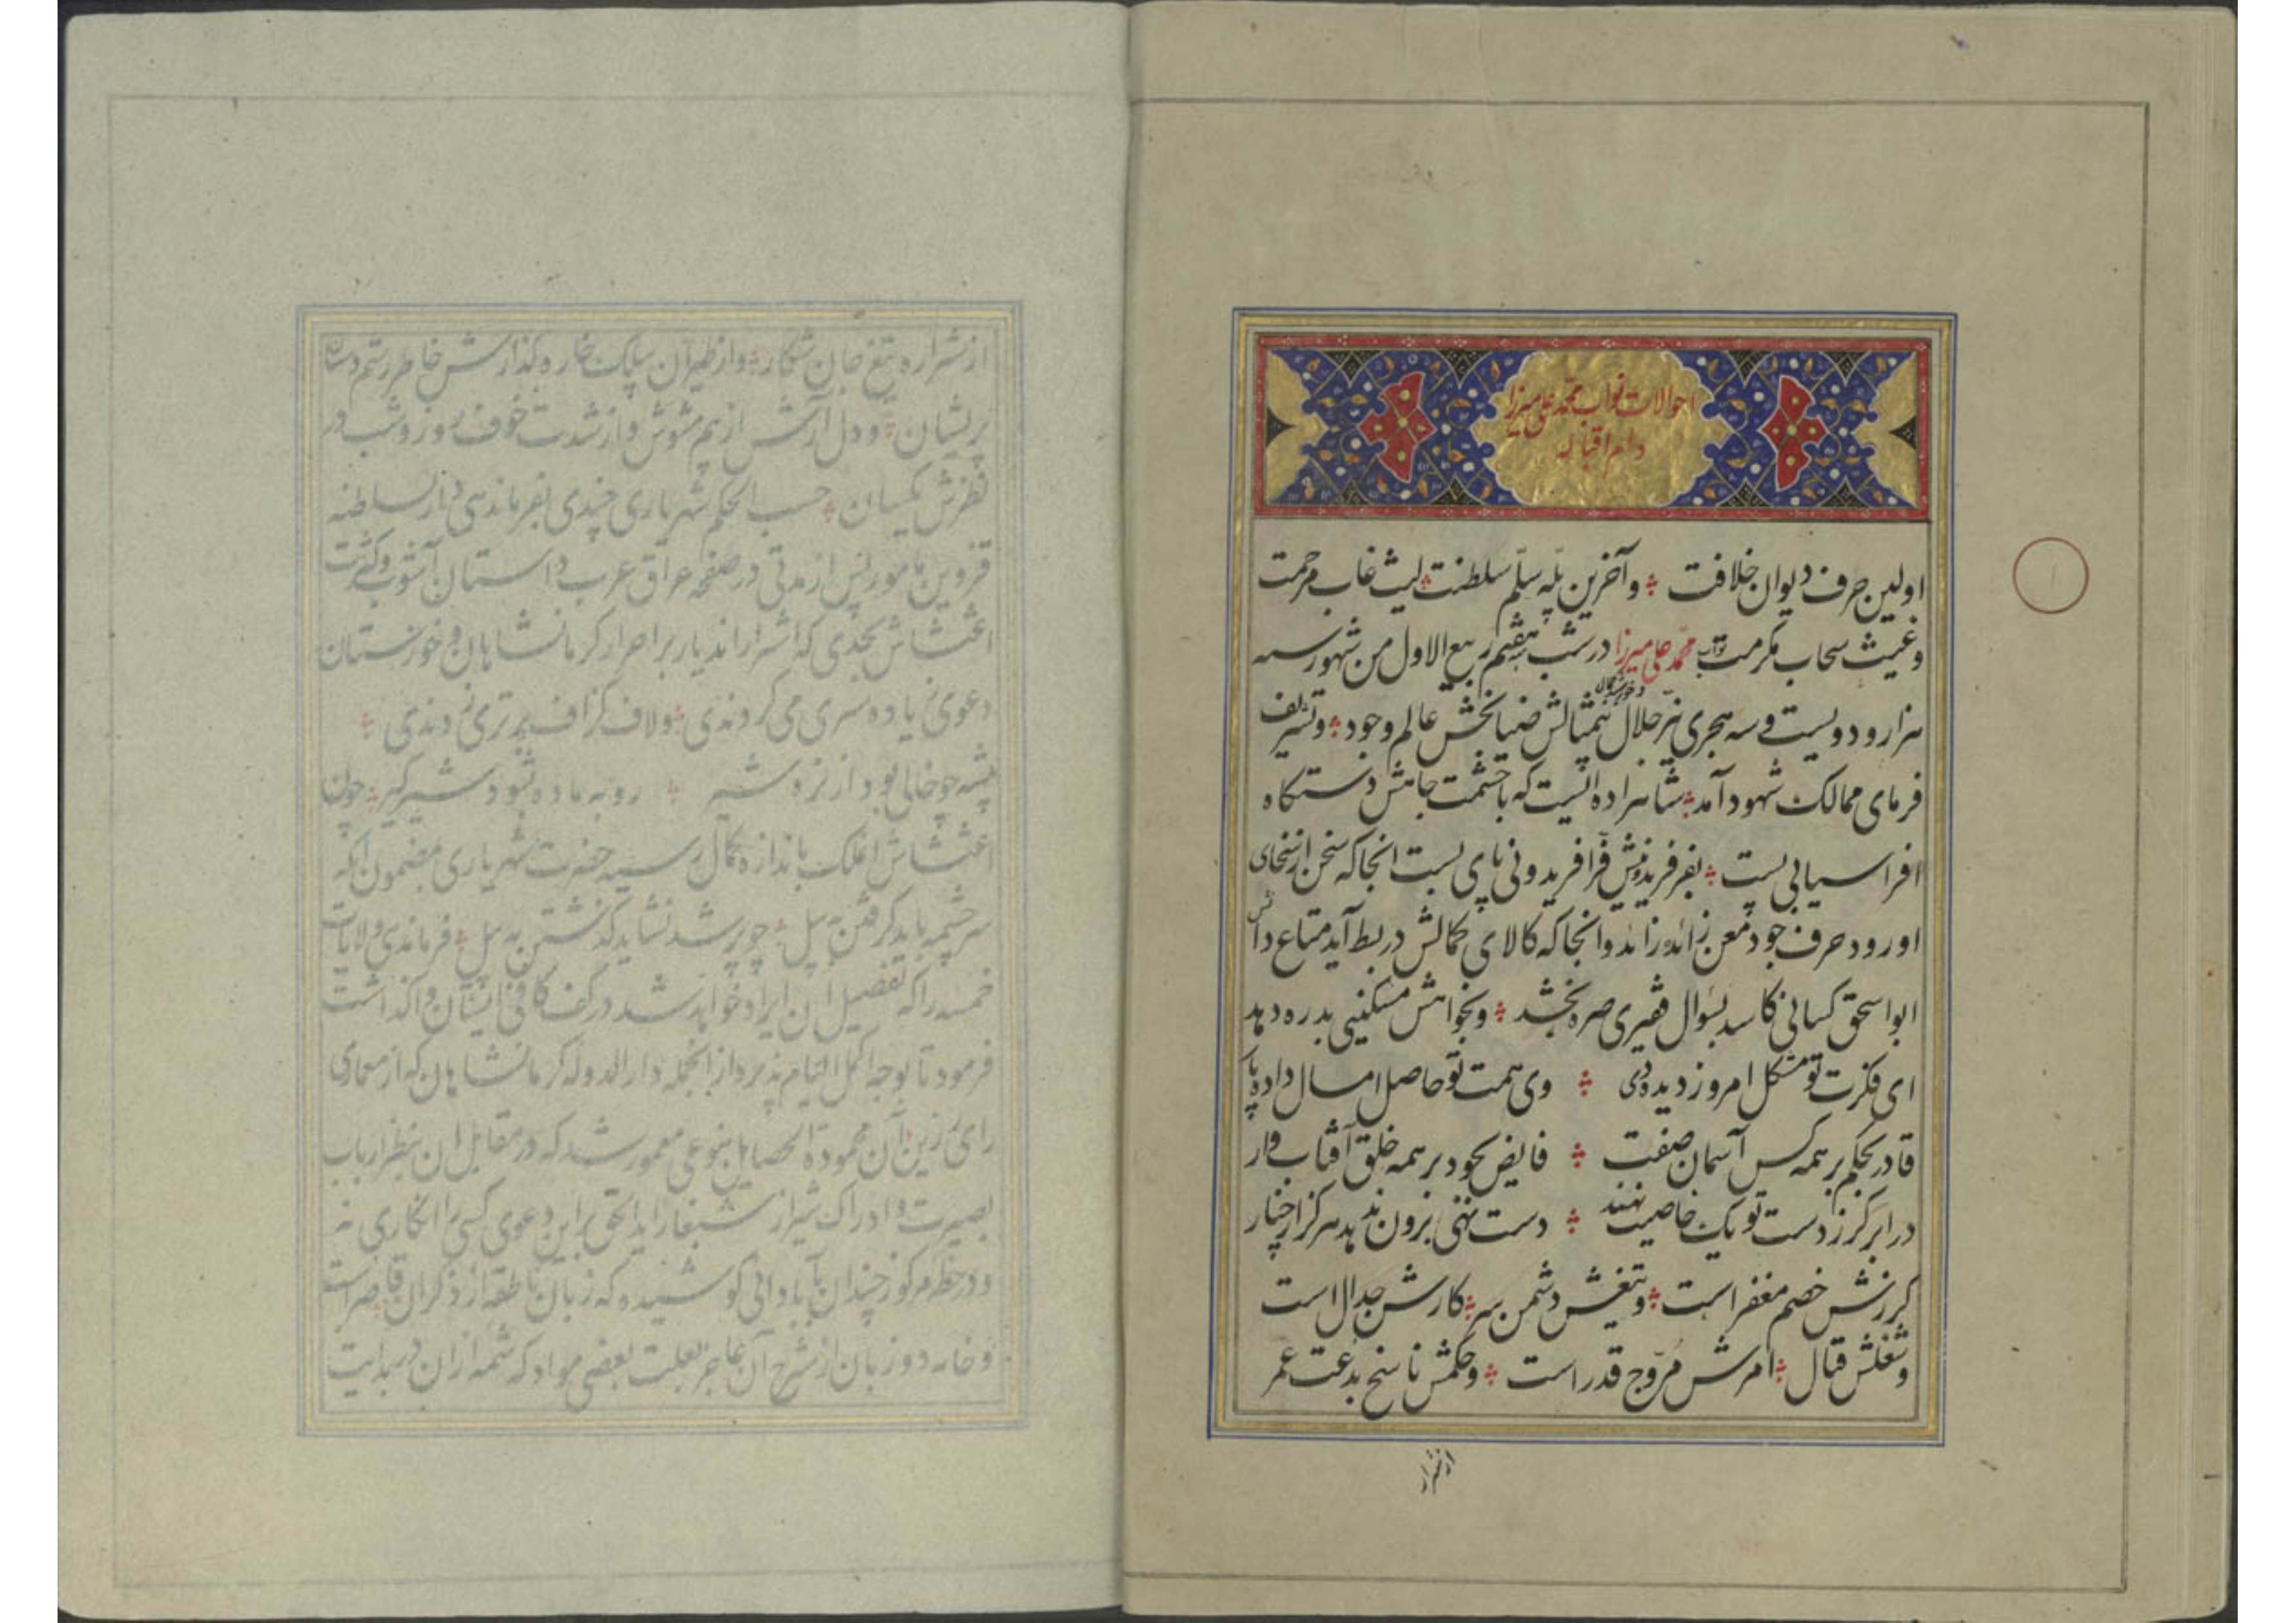 احوالات نواب محمد علی میرزا
دام اقباله
اولین حرف دیوان خلافت و آخرین پله سلّم سلطنت لیث غاب مرحمت
و غیث سحاب مکرمت نواب محمد علی میرزا در شب هفتم ربیع الاول من شهور سنه
هزار و دویست و سه هجری نیّر جلال خورشید مثالش ضیابخش عالم وجود و تشریف
فرمای ممالک شهود آمد شاهزاده ایست که با حشمت جاهش دستکاه
افراسیابی پست بفر فریدونیش فرافریدونی پای بست انجا که سخن از سخای
او رود حرف جود معن زائده زائد و انجا که کالای کمالش در بسط آید متاع دانش
ابواسحق کسائی کاسد بسوال فقیری صره بخشد و بخواهش مسکینی بدره دهد
ای فکرت تو مشکل امروز دیده دی
وی همت تو حاصل امسال داده پار
قادر بحکم بر همه کس آسمان صفت
فایض بجود بر همه خلق آفتاب وار
در ابر کر ز دست تو یک خاصیت نهند
دست تهی برون ندهد هرکز از چنار
کرزش خصم مغفر است و تیغش دشمن سر کارش جدال است
و شغلش قتال امرش مروّج قدر است و حکمش ناسخ بدعت عمر
از شرار
از شراره تیغ جان شکار و از طیران بیلک خاره کذارش خاطر رستم دستان
پریشان و دل آرش از بیم مشوش و از شدت خوف روز و شب در
نظرش یکسان حسب الحکم شهریاری چندی بفرماندهی دار السلطنه
قزوین مامور پس از مدتی در صفحه عراق عرب داستان آشوب و کثرت
اغتشاش بحدی که اشرار اندیار بر احرار کرمانشاهان و خوزستان
دعوی زیاده سری می کردندی و لاف کزاف برتری زدندی
بیشه چو خالی بود از نره شیر
روبه ماده شود شیرکیر چون
اغتشاش اغلک باندازه کمال رسید حضرت شهریاری مضمون انکه
سر چشمه باید کرفتن به بیل چو پر شد نشاید کذشتن به پیل فرماندهی ولایات
خمسه را که تفصیل ان ایراد خواهد شد در کف کافی ایشان واکذاشت
فرمود تا بوجه اکمل التیام پذیرد از انجمله دار الدوله کرمانشاهان که از معماری
رای رزین آن محمودة الخصایل بنوعی معمور شد که در مقابل ان بنظر ارباب
بصیرت و ادراک شیراز سبغا راید الحق بر این دعوی کسی را انکاری نه
و در خطه مزکور چندان بآبادانی کوشیده که زبان ناطقه از ذکر ان قاصر است
و خامه دو زبان از شرح آن عاجز بعلت بعضی مواد که شمه ازان در بدایت